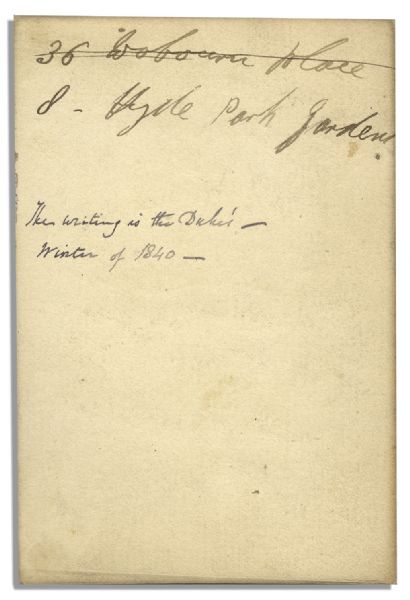 36 Woburn Place
8 - Hyde Park Gardens
The writing is the Duke's —
Winter of 1840 —